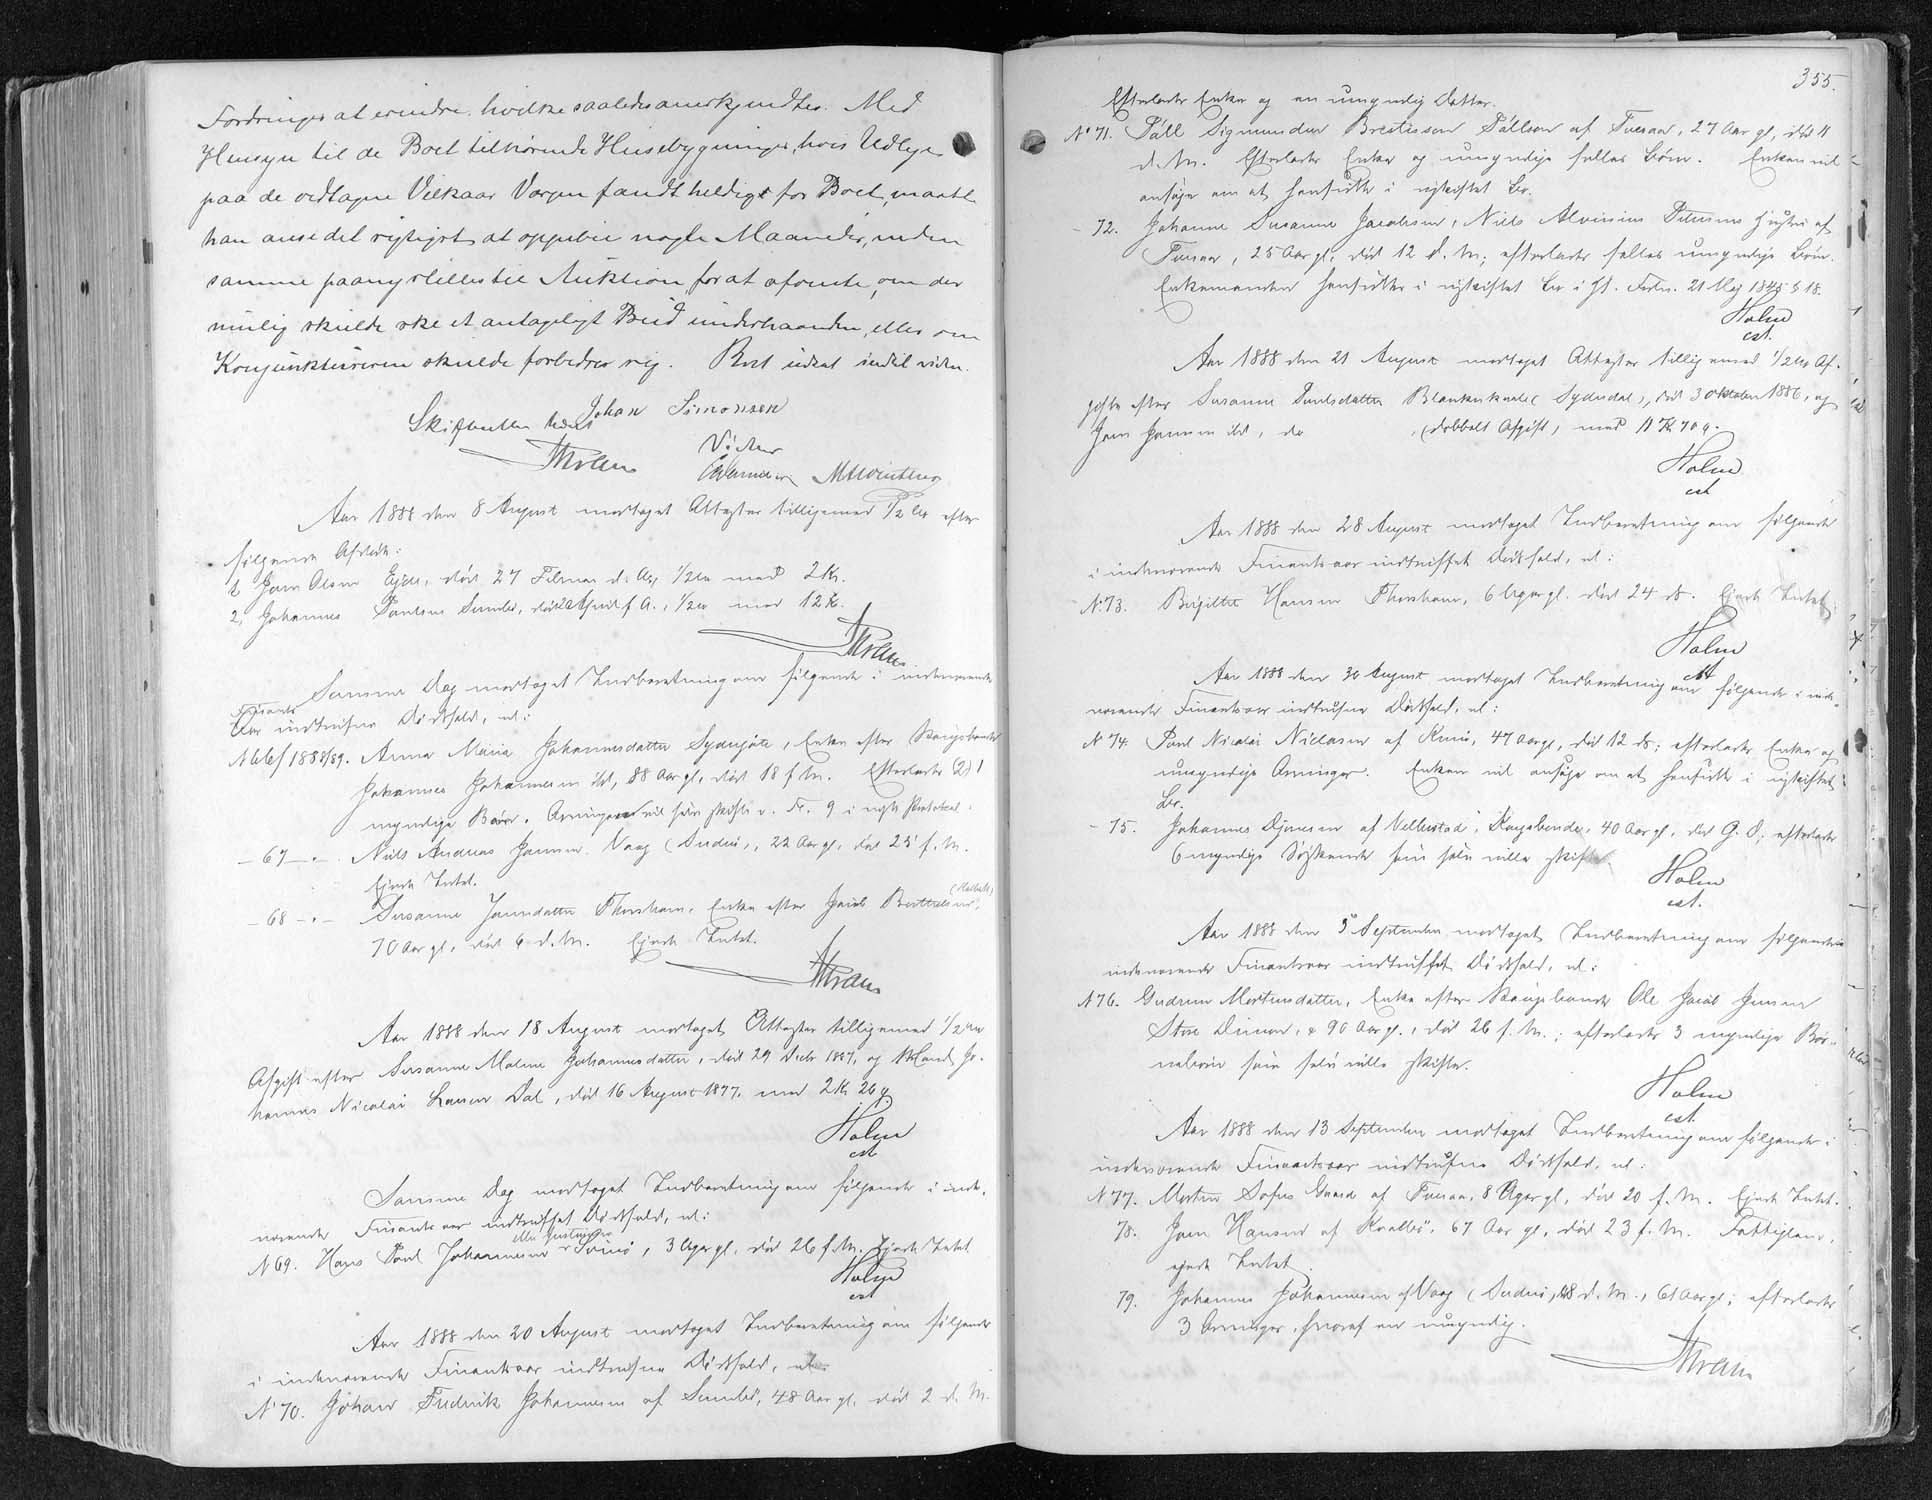 Fordringer at erindre, hvilke saaledes anerkjendtes. Med
Hensyn til de Boet tilhørende Husebygninger, hvis Udlæg
paa de vedtagne Vilkaar Værgen fandt heldigst for Boet, maatte
han anse det rigtigst at oppebie nogle Maaneder, inden
samme paany stilles til Auktion for at afvente, om der
mulig skulde ske et antageligt Bud underhaanden, eller om
Konjunkturerne skulde forbedre sig. Boet udsat indtil videre.
Skifteretten hævet Johan Simonsen
Vidner
Aar 1888 den 8 August modtaget Attester tilligemed 1/2 % efter
følgende Afdøde:
1, Joen Olsen Ejde, død 27 Februar d. A., 1/2 % med 2 Kr.
2, Johannes Poulsen Sumbø, død f. A., 1/2 % med 12 K.
Samme Dag modtaget Indberetning om følgende i indeværende
Finants
Aar indtrufne Dødsfald, nl:
N 66 f 1888/89. Anna Maria Johannesdatter Sydrejøte, Enke efter Kongsbonde
Johannes Johannesen ibd, 88 Aar gl., død 18 f. M. Efterlader (2)
myndige Børn. Arvingerne vil selv skifte v. Fr. 9 i nyeste Protokol.
– 67 – " – Niels Andreas Joensen Vaag (Suderø), 22 Aar gl., død 25 f. M.
Ejede Intet.
– 68 – " – Susanne Joensdatter Thorshavn, Enke efter Jacob
70 Aar gl., død 6 d. M. Ejede Intet.
Aar 1888 den 18 August modtaget Attester tilligemed 1/2 %
Afgift efter Susanne Malene Johannesdatter, død 29 Decbr 1887, og Mand Jo-
hannes Nicolai Larsen Dal, død 16 August 1877, med 2 Kr 26 Ø.
Holm
cst
Samme Dag modtaget Indberetning om følgende i inde-
værende Finantsaar indtruffet Dødsfald, nl:
N 69. Hans Poul Johannesen Svinø, 3 Uger gl., død 26 f. M. Ejede Intet.
Holm
cst
Aar 1888 den 20 August modtaget Indberetning om følgende
i indeværende Finantsaar indtrufne Dødsfald, nl:
N° 70. Johan Fredrik Johannesen af Sumbø, 48 Aar gl., død 2 d. M.
355.
Efterlader Enke og en umyndig Datter.
N° 71. Páll Sigmundur Brestisson Pállson af Tveraa, 27 Aar gl., død 11
d. M. Efterlader Enke og umyndige fælles Børn. Enken vil
ansøge om at hensidde i uskiftet Bo.
– 72. Johanne Susanne Jacobsen, Niels Aloisius Petersens Hustru af
Tveraa, 25 Aar gl., død 12 d. M.; efterlader fælles umyndige Børn.
Enkemanden hensidder i uskiftet Bo i Hf. Fordn. 21 Maj 1845 § 18.
Holm
cst.
Aar 1888 den 21 August modtaget Attester tilligemed 1/2 % Af-
gift efter Susanne Poulsdatter Blankeskaale (Sydradal), død 3 Oktober 1886, og
Joen Joensen ibd, do (dobbelt Afgift), med 11 Kr 70 Ø.
Holm
cst
Aar 1888 den 28 August modtaget Indberetning om følgende
i indeværende Finantsaar indtruffet Dødsfald, nl:
N° 73. Birgitte Hansen Thorshavn, 6 Uger gl. død 24 ds. Ejede Intet.
Holm
cst
Aar 1888 den 30 August modtaget Indberetning om følgende i inde-
værende Finantsaar indtrufne Dødsfald, nl:
N 74. Poul Nicolai Niclasen af Kunø, 47 Aar gl., død 12 ds; efterlader Enke og
umyndige Arvinger. Enken vil ansøge om at hensidde i uskiftet
Bo.
– 75. Johannes Djonesen af Velbestad, Kongsbonde, 40 Aar gl., død G. D.; efterlader
6 myndige Søskende som selv ville skifte.
Holm
cst.
Aar 1888 den 5 September modtaget Indberetning om følgende i
indeværende Finantsaar indtruffet Dødsfald, nl:
N 76. Gudrun Mortensdatter, Enke efter Kongsbonde Ole Jacob Jensen
Store Dimon, 90 Aar gl., død 26 f. M.; efterlader 3 myndige Bør-
nebørn som selv ville skifte.
Holm
cst.
Aar 1888 den 13 September modtaget Indberetning om følgende i
indeværende Finantsaar indtrufne Dødsfald, nl:
N 77. Morten Sofus af Tveraa, 8 Uger gl., død 20 f. M. Ejede Intet.
78. Joen Hansen af Kvalbø, 67 Aar gl., død 23 f. M. Fattiglem,
ejede Intet.
79. Johannes Johannesen af Vaag (Suderø), 8 d. M., 61 Aar gl; efterlader
3 Arvinger, hvoraf en umyndig.